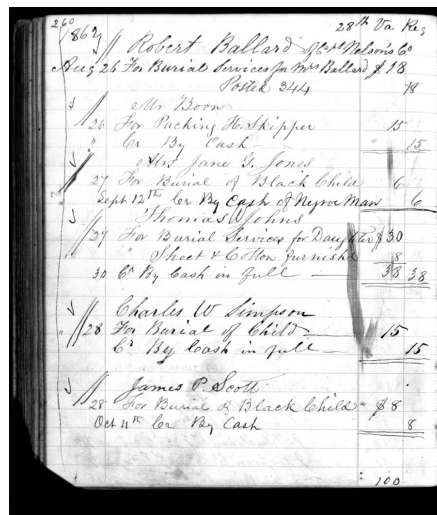 260
1862 28th Va Reg
Robert Ballard of Capt Nelson's Co
Aug 26 For Burial Services for Mrs Ballard $18
Posted 344 18
Mr Boon
26 For Packing H. Skipper 15
" Cr By Cash 15
Mrs Jane G. Jones
27 For Burial of Black Child 6
Sept 12th Cr By Cash of Negro Man 6
Thomas Johns
27 For Burial Services for Daughter $30
" Sheet & Cotton furnished 8
30 Cr By Cash in full 38 38
Charles W Simpson
28 For Burial of Child 15
Cr By Cash in full 15
James P. Scott
28 For Burial of Black Child $8
Oct 11th Cr By Cash 8
100